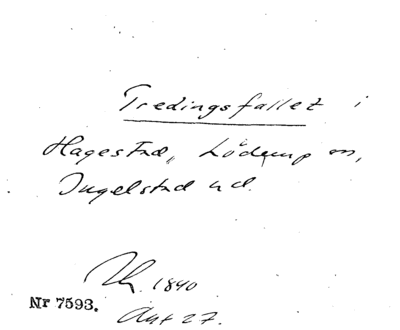 Tredingsfallet i
Hagestad, Löderup sn,
Ingelstad hd.
1840
Nr 7593.
Akt 27.